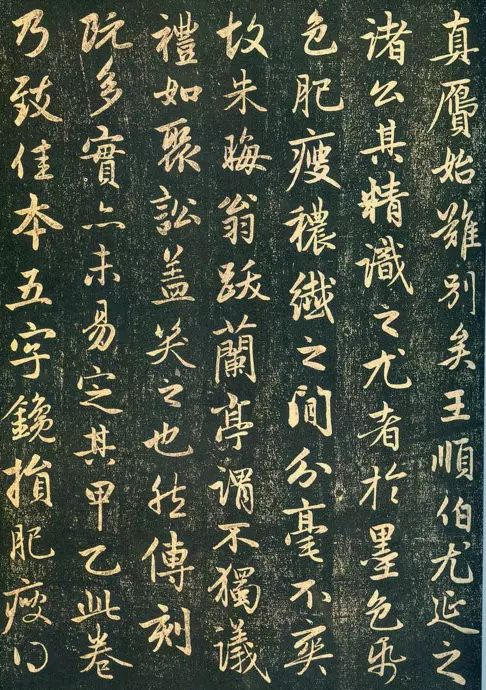 真贋始難別矣王順伯尤延之
諸公其精識之尤者於墨色帋
色肥瘦穠纖之間分毫不爽
故朱晦翁跋蘭亭謂不獨議
禮如聚訟盖笑之也然傳刻
既多實亦未易定其甲乙此卷
乃致佳本五字鑱損肥瘦得